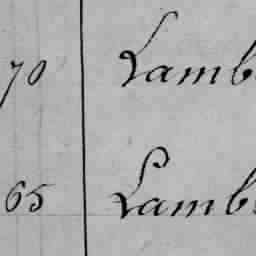 70 Lamb
65 Lamb